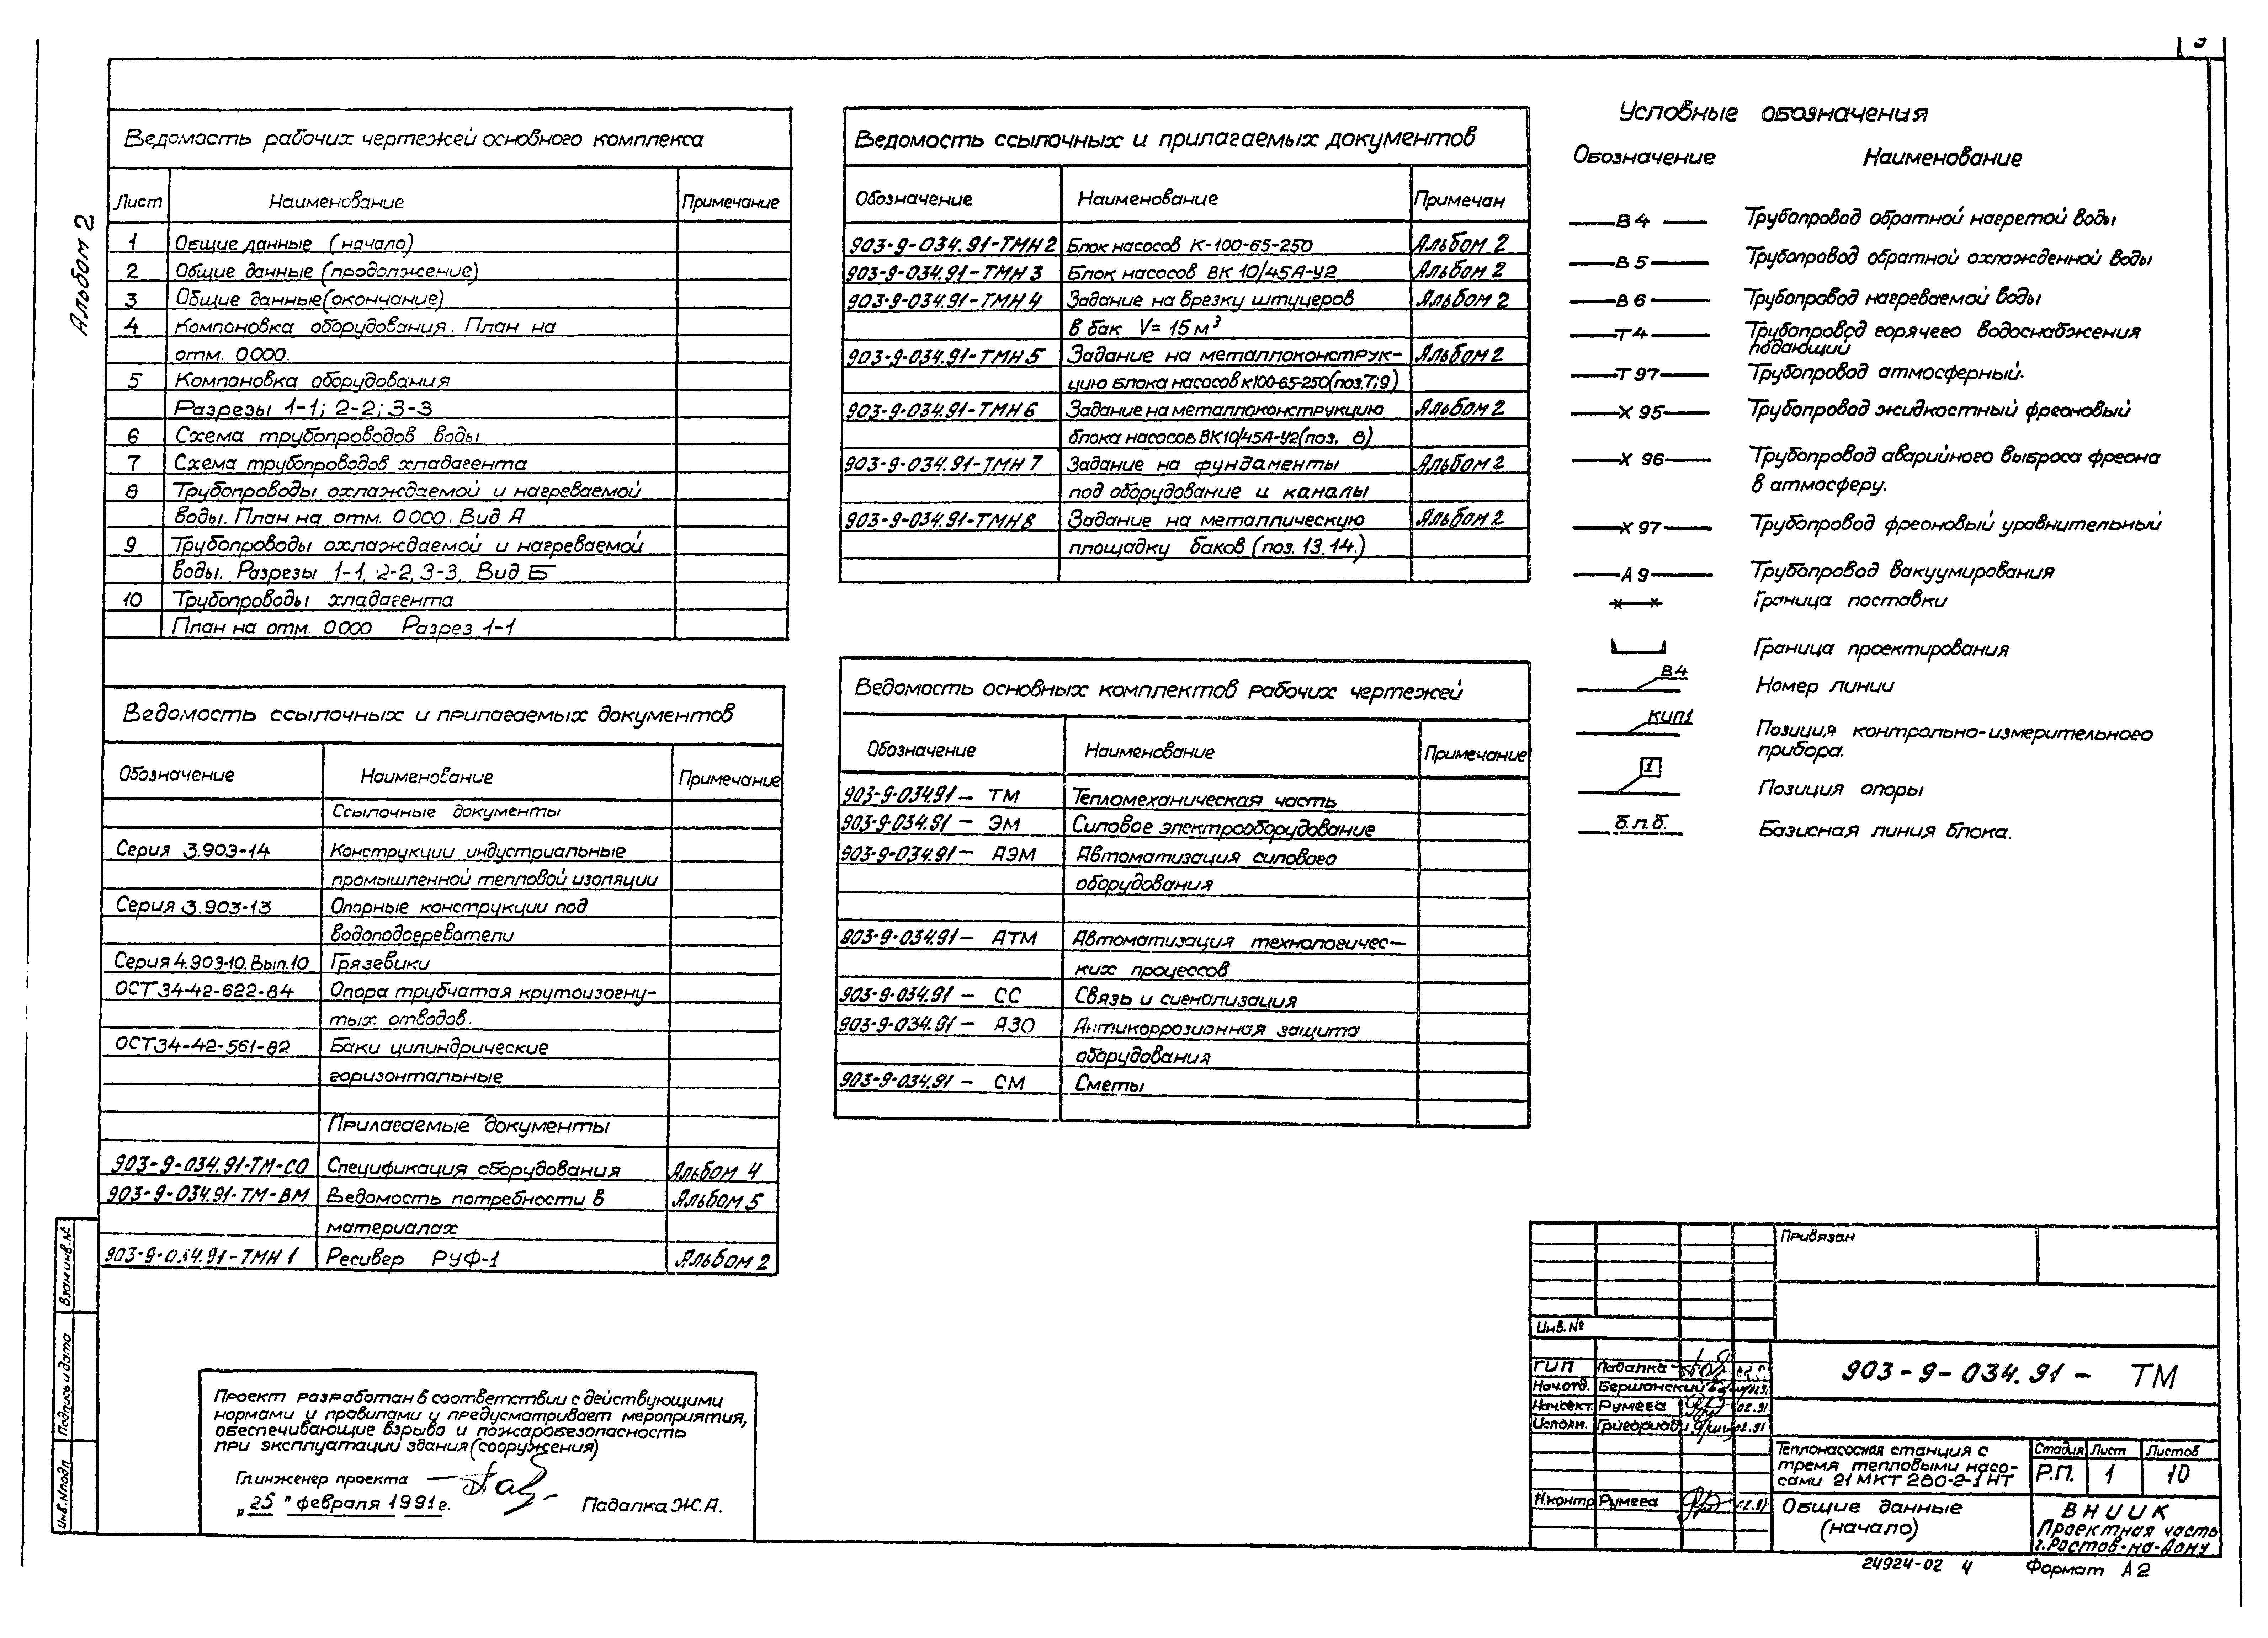 Альбом 2
Ведомость рабочих чертежей основного комплекса
Лист Наименование Примечание
1 Общие данные (начало)
2 Общие данные (продолжение)
3 Общие данные (окончание)
4 Компоновка оборудования. План на
отм. 0000.
5 Компоновка оборудования
Разрезы 1-1; 2-2; 3-3
6 Схема трубопроводов воды
7 Схема трубопроводов хладагента
8 Трубопроводы охлаждаемой и нагреваемой
воды. План на отм. 0000. Вид А
9 Трубопроводы охлаждаемой и нагреваемой
воды. Разрезы 1-1, 2-2, 3-3, Вид Б
10 Трубопроводы хладагента
План на отм. 0000 Разрез 1-1
Ведомость ссылочных и прилагаемых документов
Обозначение Наименование Примечание
Ссылочные документы
Серия 3.903-14 Конструкции индустриальные
промышленной тепловой изоляции
Серия 3.903-13 Опорные конструкции под
водоподогреватели
Серия 4.903-10. Вып.10 Грязевики
ОСТ 34-42-622-84 Опора трубчатая крутоизогну-
тых отводов.
ОСТ34-42-561-82 Баки цилиндрические
горизонтальные
Прилагаемые документы
903-9-034.91-ТМ-СО Спецификация оборудования Альбом 4
903-9-034.91-ТМ-ВМ Ведомость потребности в Альбом 5
материалах
903-9-034.91-ТМН 1 Ресивер РУФ-1 Альбом 2
Проект разработан в соответствии с действующими
нормами и правилами и предусматривает мероприятия,
обеспечивающие взрыво и пожаробезопасность
при эксплуатации здания (сооружения)
Гл.инженер проекта
„25" февраля 1991г. Падалка Ж.А.
Ведомость ссылочных и прилагаемых документов
Обозначение Наименование Примечан
903-9-034.91-ТМН 2 Блок насосов К-100-65-250 Альбом 2
903-9-034.91-ТМН 3 Блок насосов ВК 10/45А-У2 Альбом 2
903-9-034.91-ТМН 4 Задание на врезку штуцеров Альбом 2
в бак V= 15 м³
903-9-034.91-ТМН 5 Задание на металлоконструк- Альбом 2
цию блока насосов К100-65-250 (поз.7;9)
903-9-034.91-ТМН 6 Задание на металлоконструкцию Альбом 2
блока насосов ВК10/45А-У2 (поз. 8)
903-9-034.91-ТМН 7 Задание на фундаменты Альбом 2
под оборудование и каналы
903-9-034.91-ТМН 8 Задание на металлическую Альбом 2
площадку баков (поз. 13.14.)
Ведомость основных комплектов рабочих чертежей
Обозначение Наименование Примечание
903-9-034.91 - ТМ Тепломеханическая часть
903-9-034.91 - ЭМ Силовое электрооборудование
903-9-034.91 - АЭМ Автоматизация силового
оборудования
903-9-034.91 - АТМ Автоматизация технологичес-
ких процессов
903-9-034.91 - СС Связь и сигнализация
903-9-034.91 - АЗО Антикоррозионная защита
оборудования
903-9-034.91 - СМ Сметы
Условные обозначения
Обозначение Наименование
В4 Трубопровод обратной нагретой воды
В5 Трубопровод обратной охлажденной воды
В6 Трубопровод нагреваемой воды
Т4 Трубопровод горячего водоснабжения
подающий
Т97 Трубопровод атмосферный.
Х 95 Трубопровод жидкостный фреоновый
Х 96 Трубопровод аварийного выброса фреона
в атмосферу.
Х 97 Трубопровод фреоновый уравнительный
А9 Трубопровод вакуумирования
Граница поставки
Граница проектирования
В4 Номер линии
КИП1 Позиция контрольно-измерительного
прибора.
1 Позиция опоры
б.л.б. Базисная линия блока.
Взам инв.№
Подпись и дата
Инв.№подл
Привязан
Инв.№
ГИП Падалка
Нач.отд. Бершанский
Нач.сект. Румеева 02.91
Исполн. 02.91
Н.контр Румеева
903-9-034.91 - ТМ
Теплонасосная станция с
тремя тепловыми насо-
сами 21 МКТ 280-2-1 НТ
Стадия Лист Листов
Р.П. 1 10
Общие данные
(начало)
ВНИИК
Проектная часть
г.Ростов-на-Дону
24924-02 4 Формат А2